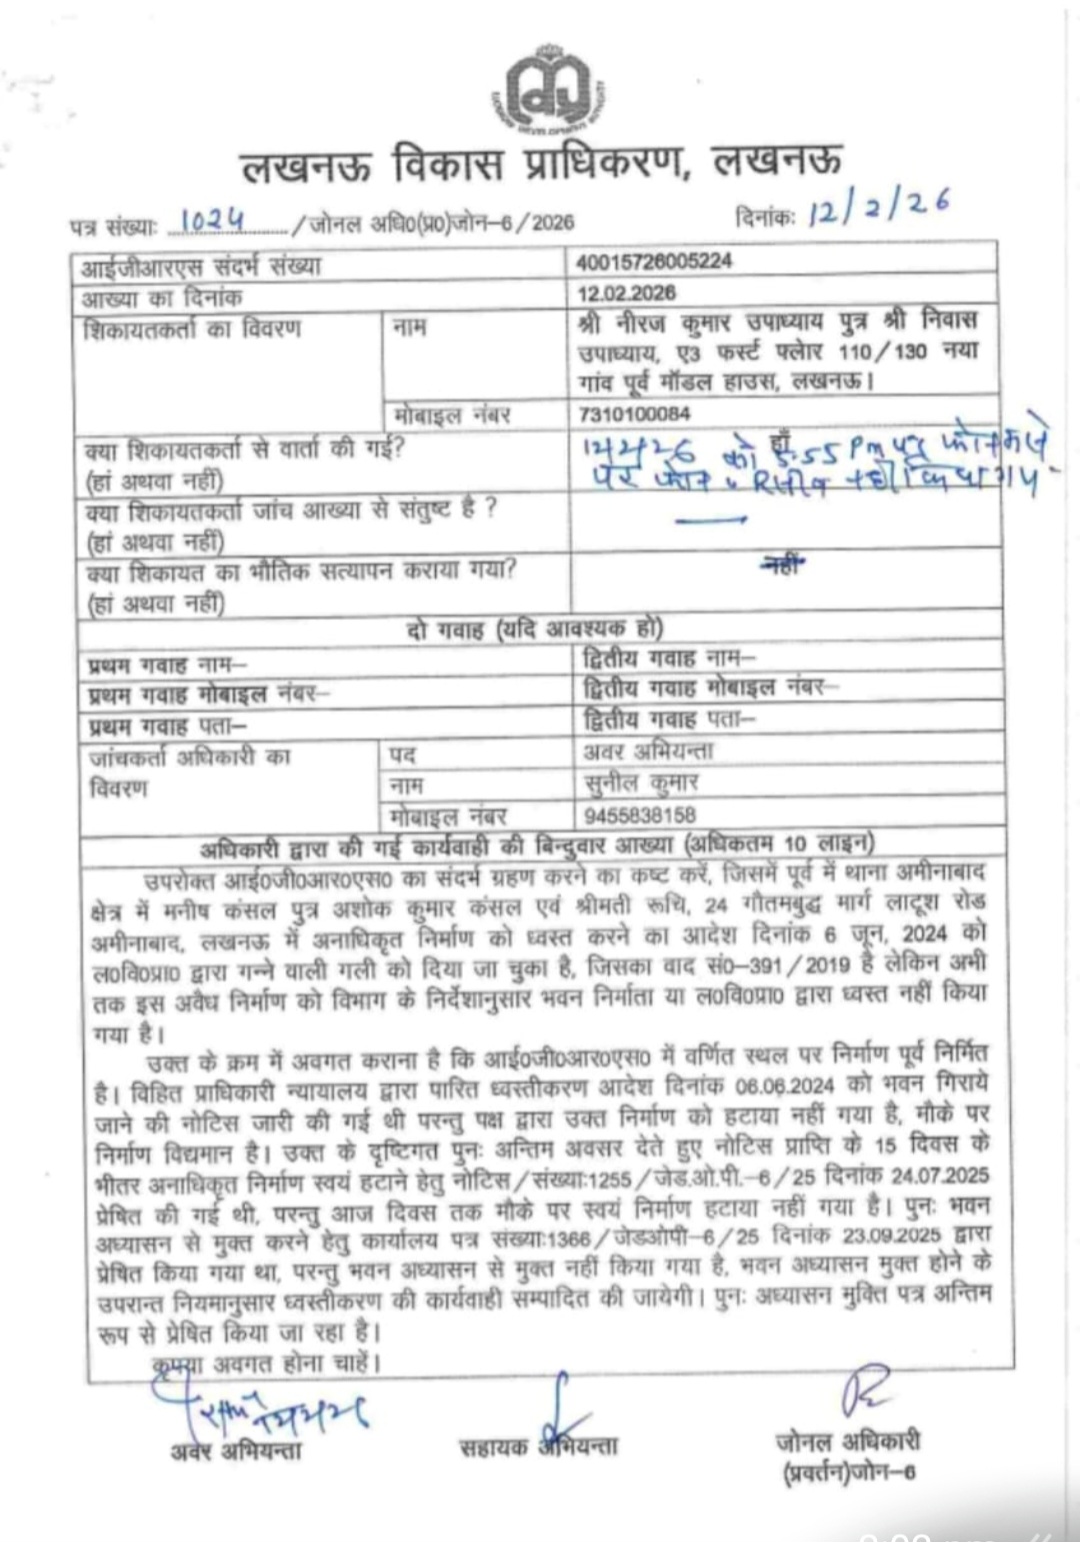 LUCKNOW DEVELOPMENT AUTHORITY
लखनऊ विकास प्राधिकरण, लखनऊ
पत्र संख्याः 1024 /जोनल अधि0(प्र0)जोन–6/2026 दिनांकः 12/2/26
आईजीआरएस संदर्भ संख्या 40015726005224
आख्या का दिनांक 12.02.2026
शिकायतकर्ता का विवरण नाम श्री नीरज कुमार उपाध्याय पुत्र श्री निवास
उपाध्याय, ए3 फर्स्ट फ्लोर 110/130 नया
गांव पूर्व मॉडल हाउस, लखनऊ।
मोबाइल नंबर 7310100084
क्या शिकायतकर्ता से वार्ता की गई?
(हां अथवा नहीं)
हाँ
को 5:55 Pm पर फोन
पर फोन रिसीव नही किया गया
क्या शिकायतकर्ता जांच आख्या से संतुष्ट है ?
(हां अथवा नहीं)
क्या शिकायत का भौतिक सत्यापन कराया गया? नहीं
(हां अथवा नहीं)
दो गवाह (यदि आवश्यक हो)
प्रथम गवाह नाम– द्वितीय गवाह नाम–
प्रथम गवाह मोबाइल नंबर– द्वितीय गवाह मोबाइल नंबर–
प्रथम गवाह पता– द्वितीय गवाह पता–
जांचकर्ता अधिकारी का पद अवर अभियन्ता
विवरण नाम सुनील कुमार
मोबाइल नंबर 9455838158
अधिकारी द्वारा की गई कार्यवाही की बिन्दुवार आख्या (अधिकतम 10 लाइन)
उपरोक्त आई0जी0आर0एस0 का संदर्भ ग्रहण करने का कष्ट करें, जिसमें पूर्व में थाना अमीनाबाद
क्षेत्र में मनीष कंसल पुत्र अशोक कुमार कंसल एवं श्रीमती रूचि, 24 गौतमबुद्ध मार्ग लादूश रोड
अमीनाबाद, लखनऊ में अनाधिकृत निर्माण को ध्वस्त करने का आदेश दिनांक 6 जून, 2024 को
ल0वि0प्रा0 द्वारा गन्ने वाली गली को दिया जा चुका है, जिसका वाद सं0–391/2019 है लेकिन अभी
तक इस अवैध निर्माण को विभाग के निर्देशानुसार भवन निर्माता या ल0वि0प्रा0 द्वारा ध्वस्त नहीं किया
गया है।
उक्त के क्रम में अवगत कराना है कि आई0जी0आर0एस0 में वर्णित स्थल पर निर्माण पूर्व निर्मित
है। विहित प्राधिकारी न्यायालय द्वारा पारित ध्वस्तीकरण आदेश दिनांक 06.06.2024 को भवन गिराये
जाने की नोटिस जारी की गई थी परन्तु पक्ष द्वारा उक्त निर्माण को हटाया नहीं गया है, मौके पर
निर्माण विद्यमान है। उक्त के दृष्टिगत पुनः अन्तिम अवसर देते हुए नोटिस प्राप्ति के 15 दिवस के
भीतर अनाधिकृत निर्माण स्वयं हटाने हेतु नोटिस/संख्या:1255/जेड.ओ.पी.–6/25 दिनांक 24.07.2025
प्रेषित की गई थी, परन्तु आज दिवस तक मौके पर स्वयं निर्माण हटाया नहीं गया है। पुनः भवन
अध्यासन से मुक्त करने हेतु कार्यालय पत्र संख्या:1366/जेडओपी–6/25 दिनांक 23.09.2025 द्वारा
प्रेषित किया गया था, परन्तु भवन अध्यासन से मुक्त नहीं किया गया है, भवन अध्यासन मुक्त होने के
उपरान्त नियमानुसार ध्वस्तीकरण की कार्यवाही सम्पादित की जायेगी। पुनः अध्यासन मुक्ति पत्र अन्तिम
रूप से प्रेषित किया जा रहा है।
कृपया अवगत होना चाहें।
अवर अभियन्ता सहायक अभियन्ता जोनल अधिकारी
(प्रवर्तन)जोन–6